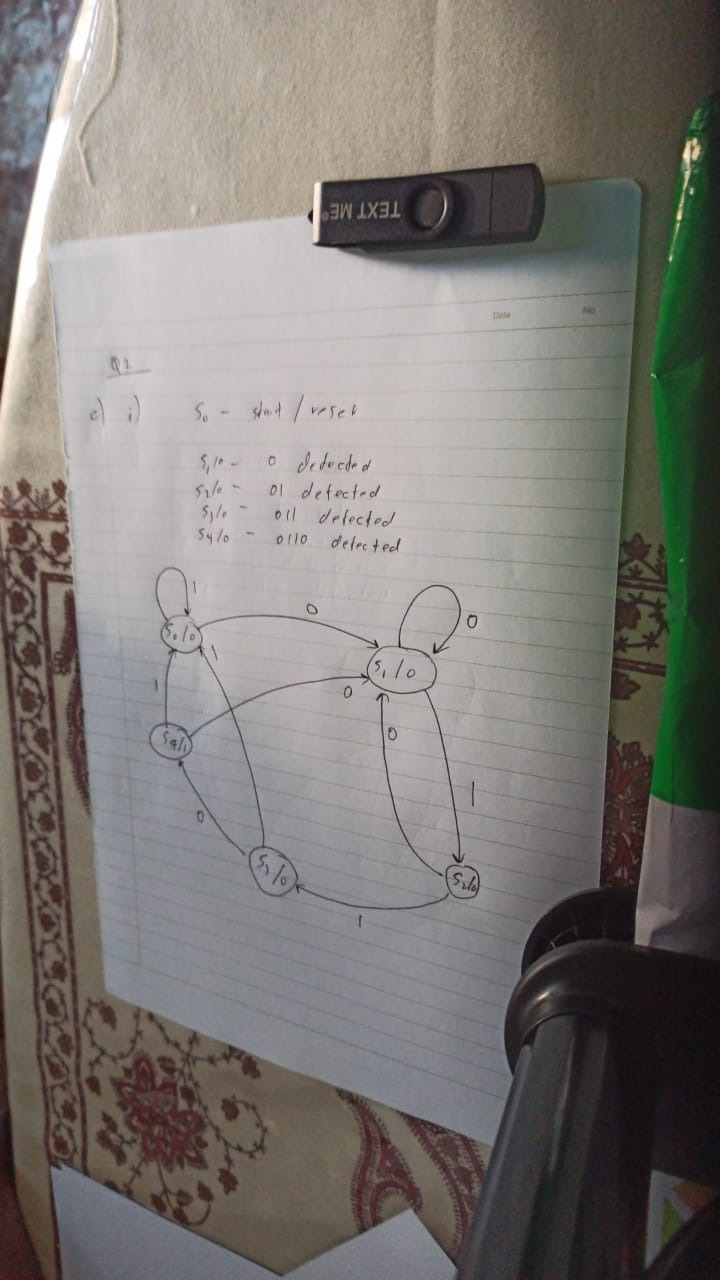 TEXT ME
Date No
Q2
c) i) S0 - start / reset
S1/0 - 0 detected
S2/0 - 01 detected
S3/0 - 011 detected
S4/0 - 0110 detected
1
0
0
S0/0
1
S1/0
1
0
S4/1
0
1
0
S3/0
S2/0
1